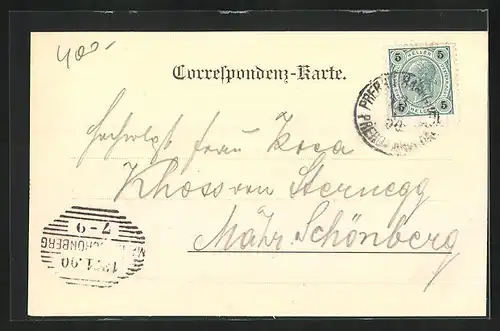 400-
Correspondenz-Karte.
5 5
HELLER
5 5
PRERAU
Hochwolgb Frau Roca
Khoss von Sternegg
Mähr. Schönberg
7-9
SCHÖNBERG
1.90